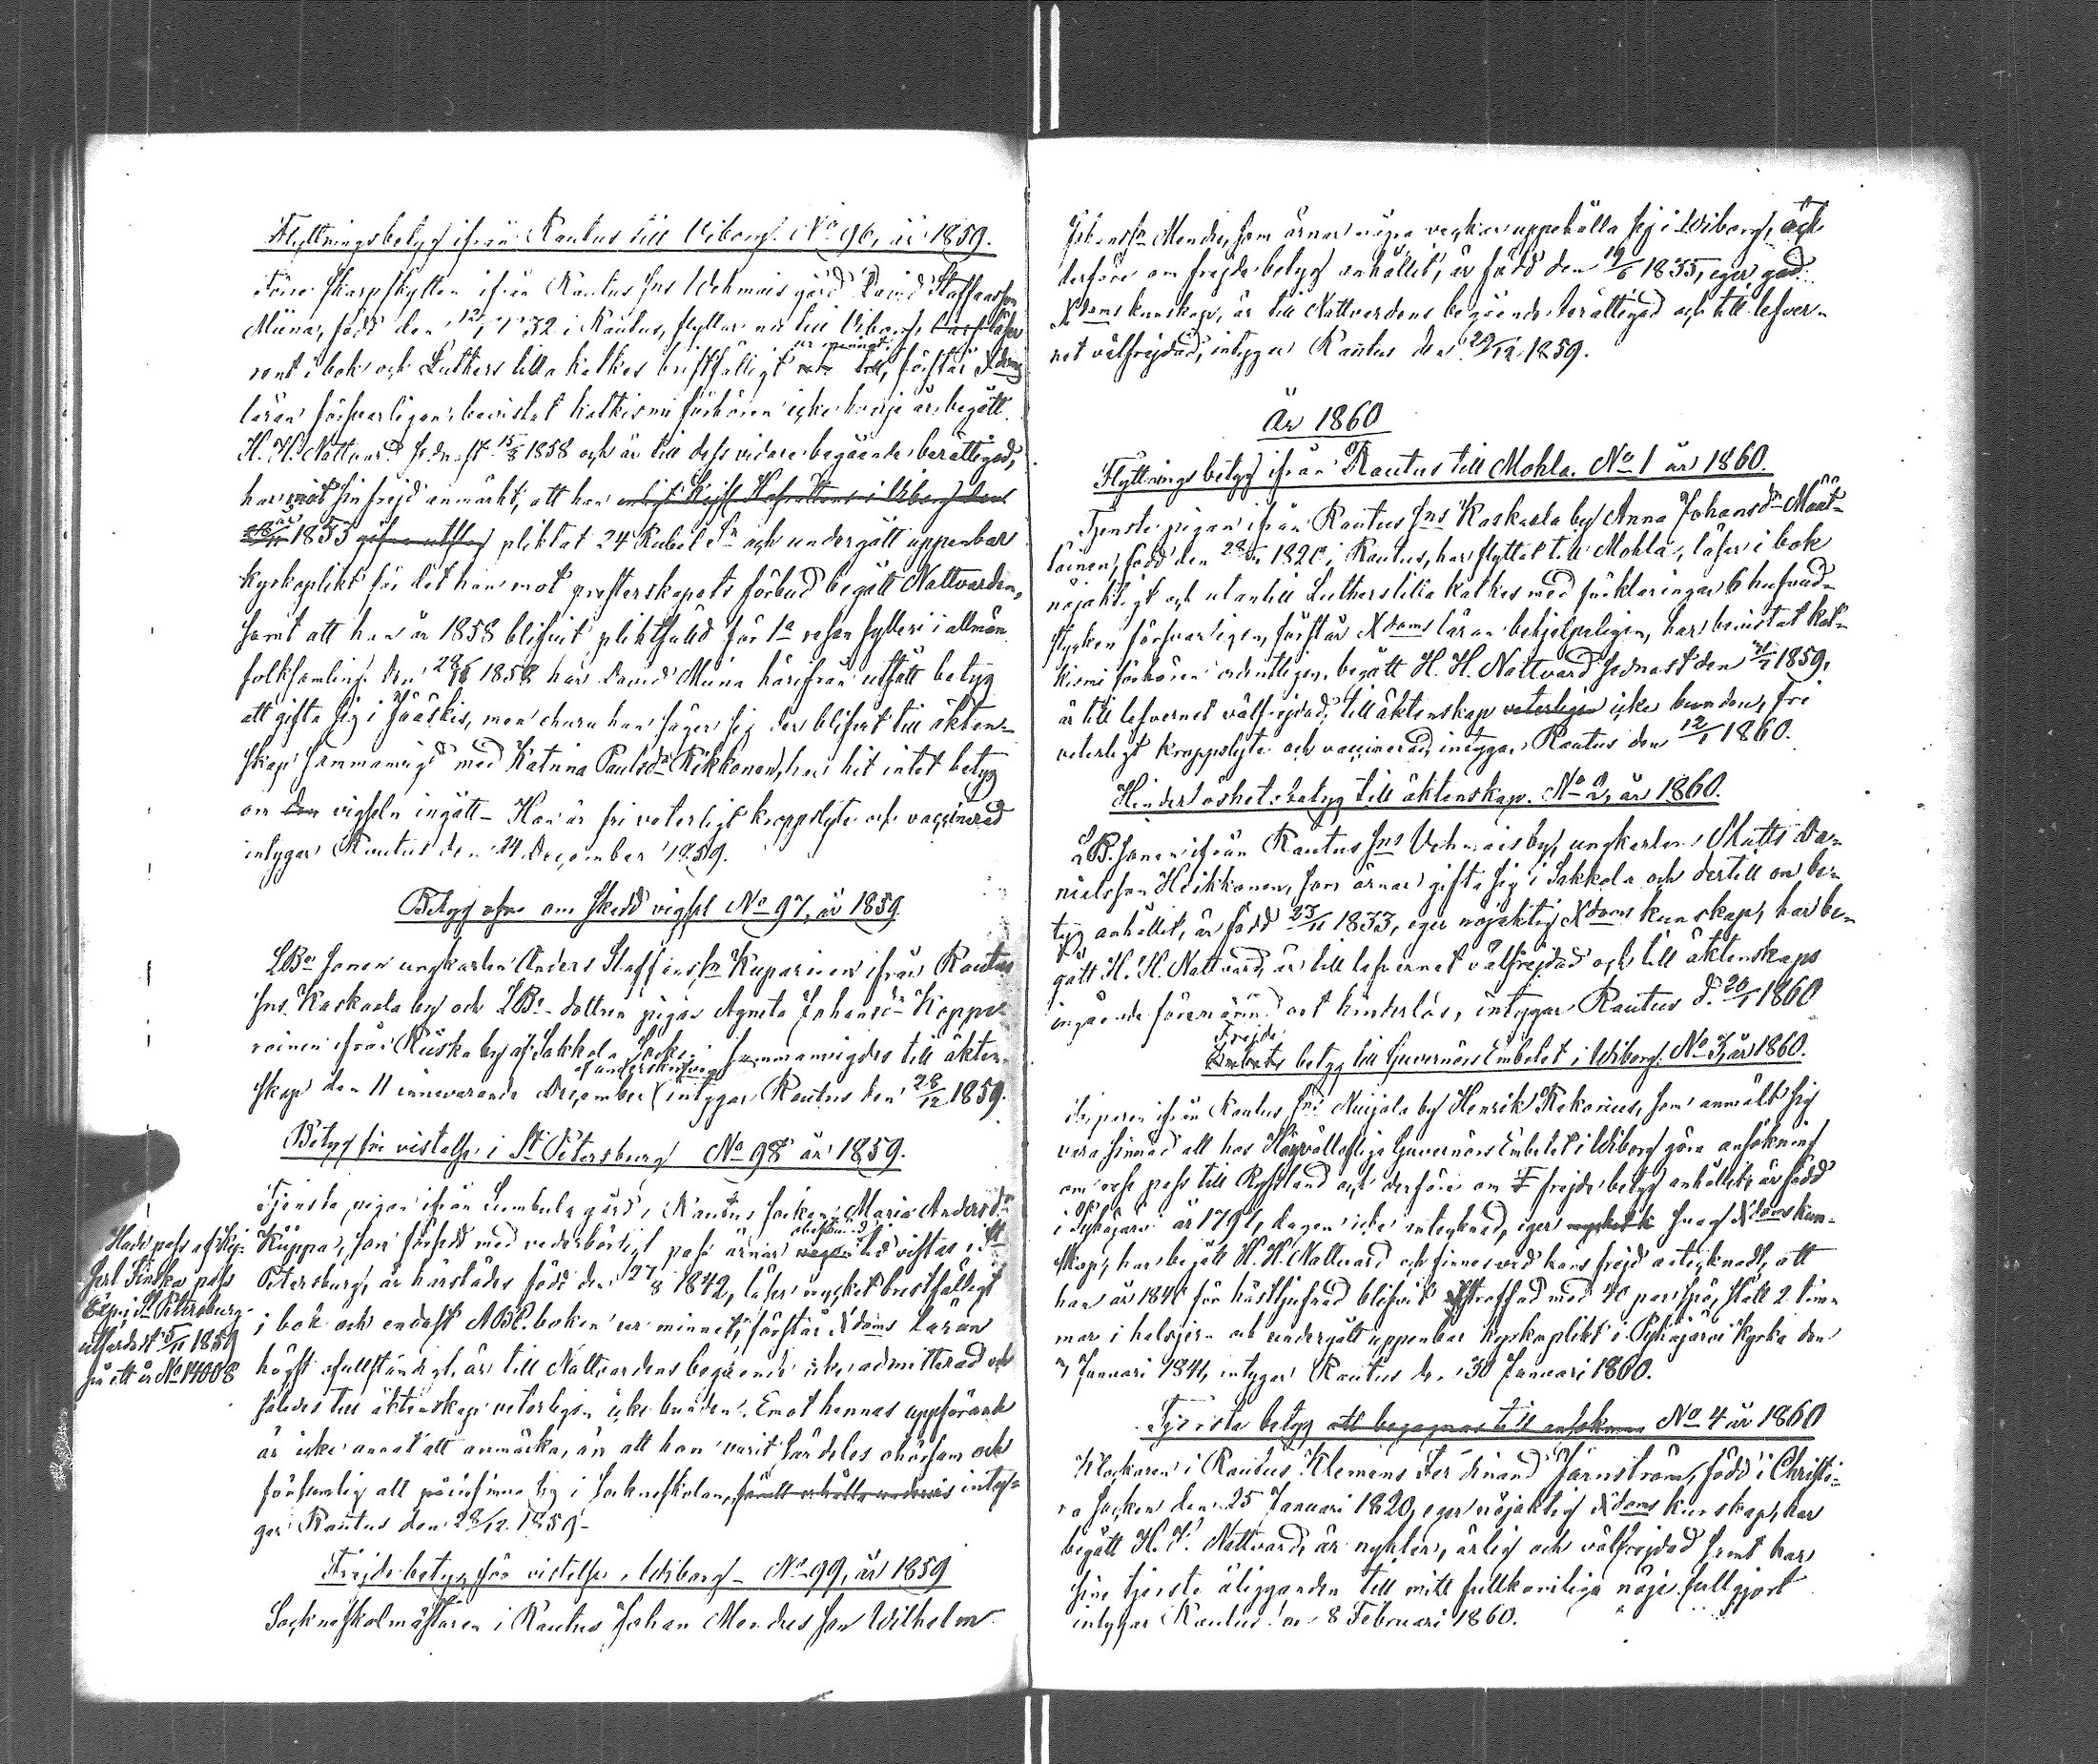 Flyttningsbetyg ifrån Rautus till Viborg. No 96, år 1859.
Förre Skarpskytten ifrån Rautus Sns Wehmais gård David Staffansson
Miina, född den 1832 i Rautus, flyttar nu till Viborg, läser
rent i bok och Luthers lilla katkes bristfälligt ur minnet, förstår Xdoms
läran försvarligen, bevistat katkismi förhören icke hvarje år, begått
H. H. Nattvard sednast 1858 och är till dess vidare begående berättigad,
har mot sin frejd anmärkt, att han
år 1853 pliktat 24 Rubel Sr och undergått uppenbar
kyrkoplikt för det han mot presterskapets förbud begått Nattvarden,
samt att han år 1858 blifvit pliktfälld för 1a resan fylleri i allmän
folksamling. Den 1858 har David Miina härifrån utfått betyg
att gifta sig i Jääskis, men churu han säger sig der blifvit till äkten-
skap sammanvigd med Katrina Paulsdr Kikkonen, har hit intet betyg
om den vigseln ingått – Han är fri veterligt kroppslyte och vaccinerad
intygar Rautus den 24 December 1859.
Betyg om skedd vigsel No 97, år 1859.
LBo Sonen ungkarlen Anders Staffansson Kuparinen ifrån Rautus
Sns Kaskaala by och LBo-dottren pigan Agneta Johansdr Koppe-
roinen ifrån Riiska by af Sakkola Socken sammanvigdes till äkten-
skap den 11 innevarande December af undertecknad intygar Rautus den 28/12 1859.
Betyg för vistelse i St Petersburg No 98 år 1859.
Tjenste pigan ifrån Sumbula gård, Rautus Socken Maria Andersdr
Kuppa, som försedd med vederbörligt pass ärnar tid vistas i St
Petersburg, är härstädes född den 27/8 1842, läser mycket bristfälligt
i bok och endast ABC boken ur minnet, förstår Xdoms Läran
högst ofullständigt, är till Nattvardens begående icke admitterad och
således till äktenskap veterligen icke bunden. Emot hennes uppförande
är icke annat att anmärka, än att hon varit särdeles ohörsam och
försumlig att infinna sig i Sockneskolan, inty-
gar Rautus den 28/12 1859 –
Hade pass af
Finska pass
Exp. i St Petersburg
utfärdat 5/11 1859
på ett år No 14008
Frejdebetyg för vistelse i Wiborg – No 99, år 1859
Sockneskolmästaren i Rautus Johan Mendres son Wilhelm
Johansson Mendre, som ärnar några veckor uppehålla sig i Wiborg, och
derföre om frejdebetyg anhållit, är född den 19/6 1835, eger god
Xdoms kunskap, är till Nattvardens begående berättigad och till lefver-
net välfrejdad, intygar Rautus den 29/12 1859.
År 1860
Flyttnings betyg ifrån Rautus till Mohla. No 1 år 1860.
Tjenste pigan ifrån Rautus Sns Kaskaala by Anna Johansdr Most-
lainen, född den 1820 i Rautus, har flyttat till Mohla, läser i bok
nöjaktigt och utantill Luthers lilla katkes med förklaringar 6 hufvud-
stycken försvarligen, förstår Xdoms läran behjelpeligen, har bevistat kat-
kismi förhören ordentligen, begått H. H. Nattvard sednast den 1859,
är till lefvernet välfrejdad, till äktenskap veterligen icke bunden, fri
veterligt kroppslyte och vaccinerad, intygar Rautus den 12/1 1860.
Hinderlöshetsbetyg till äktenskap. No 2, år 1860.
LB. sonen ifrån Rautus Sns Vehmais by, ungkarlen Matts Da-
nielsson Heikkonen, som ärnar gifta sig i Sakkola och dertill om be-
tyg anhållit, är född 23/11 1833, eger nöjaktig Xdoms kunskap, har be-
gått H. H. Nattvard, är till lefvernet välfrejdad och till äktenskaps
ingående förenämnd ort hinderlös, intygar Rautus d. 20/1 1860
Frejde
betyg till Guvernörs Embetet i Wiborg. No 3, år 1860.
ifrån Rautus Sns Nuijala by Henrik Kekonius, som anmält sig
vara sinnad att hos Högvällofliga Guvernörs Embetet i Wiborg göra ansökning
om rese pass till Ryssland och derföre om frejde betyg anhållit, är född
i Pyhäjärvi år 1794, dagen icke antecknad, eger svag Xdoms kun-
skap, har begått H. H. Nattvard och finnes vid hans frejd antecknadt, att
han år 1840 för hästtjufnad blifvit straffad med 40 par spö, stått 2 tim-
mar i halsjern och undergått uppenbar kyrkoplikt i Pyhäjärvi kyrka den
7 Januari 1841, intygar Rautus den 30 Januari 1860.
Tjenste betyg att begagnas till ansökning No 4 år 1860
Klockaren i Rautus Klemens Ferdinand Järnström, född i Christi-
na Socken den 25 Januari 1820, eger nöjaktig Xdoms kunskap, har
begått H. H. Nattvard, är nykter, ärlig och välfrejdad samt har
sine tjenste åligganden till mitt fullkomliga nöje fullgjort
intygar Rautus den 8 Februari 1860.